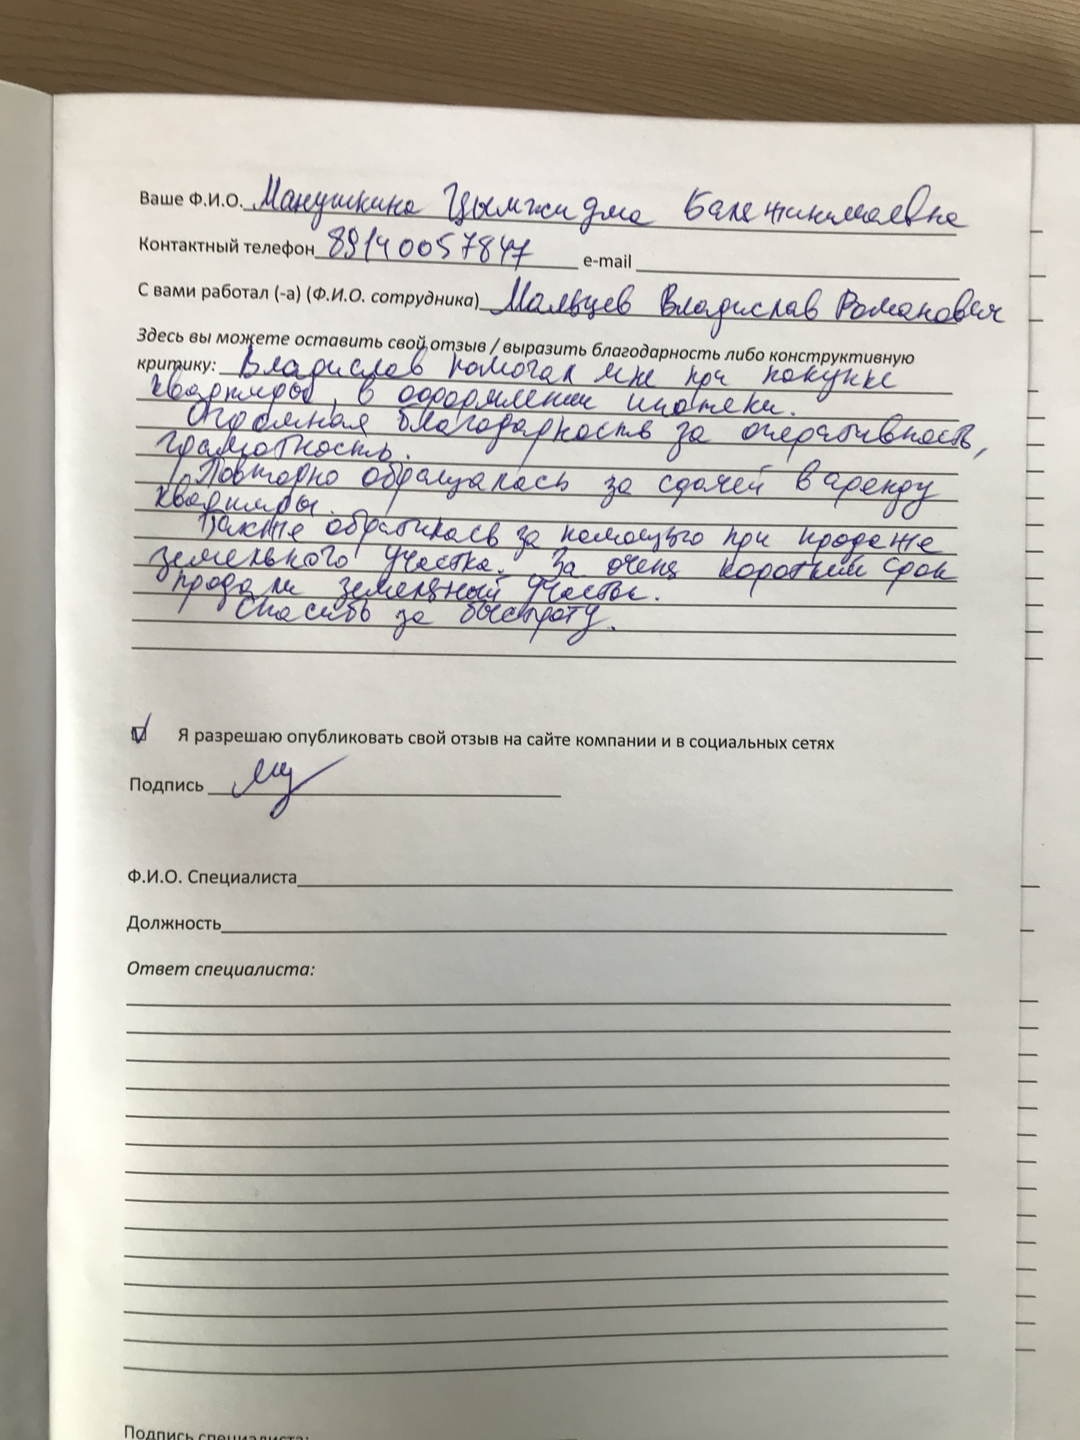 Ваше Ф.И.О. Манушкина Цымжидма Балжинимаевна
Контактный телефон 89140057847 e-mail
С вами работал (-а) (Ф.И.О. сотрудника) Мальцев Владислав Романович
Здесь вы можете оставить свой отзыв / выразить благодарность либо конструктивную
критику: Владислав помогал мне при покупке
квартиры, в оформлении ипотеки.
Огромная благодарность за оперативность,
грамотность.
Повторно обращалась за сдачей в аренду
квартиры.
Также обратилась за помощью при продаже
земельного участка. За очень короткий срок
продали земельный участок.
Спасибо за быстроту.
Я разрешаю опубликовать свой отзыв на сайте компании и в социальных сетях
Подпись
Ф.И.О. Специалиста
Должность
Ответ специалиста:
Подпись специалиста: